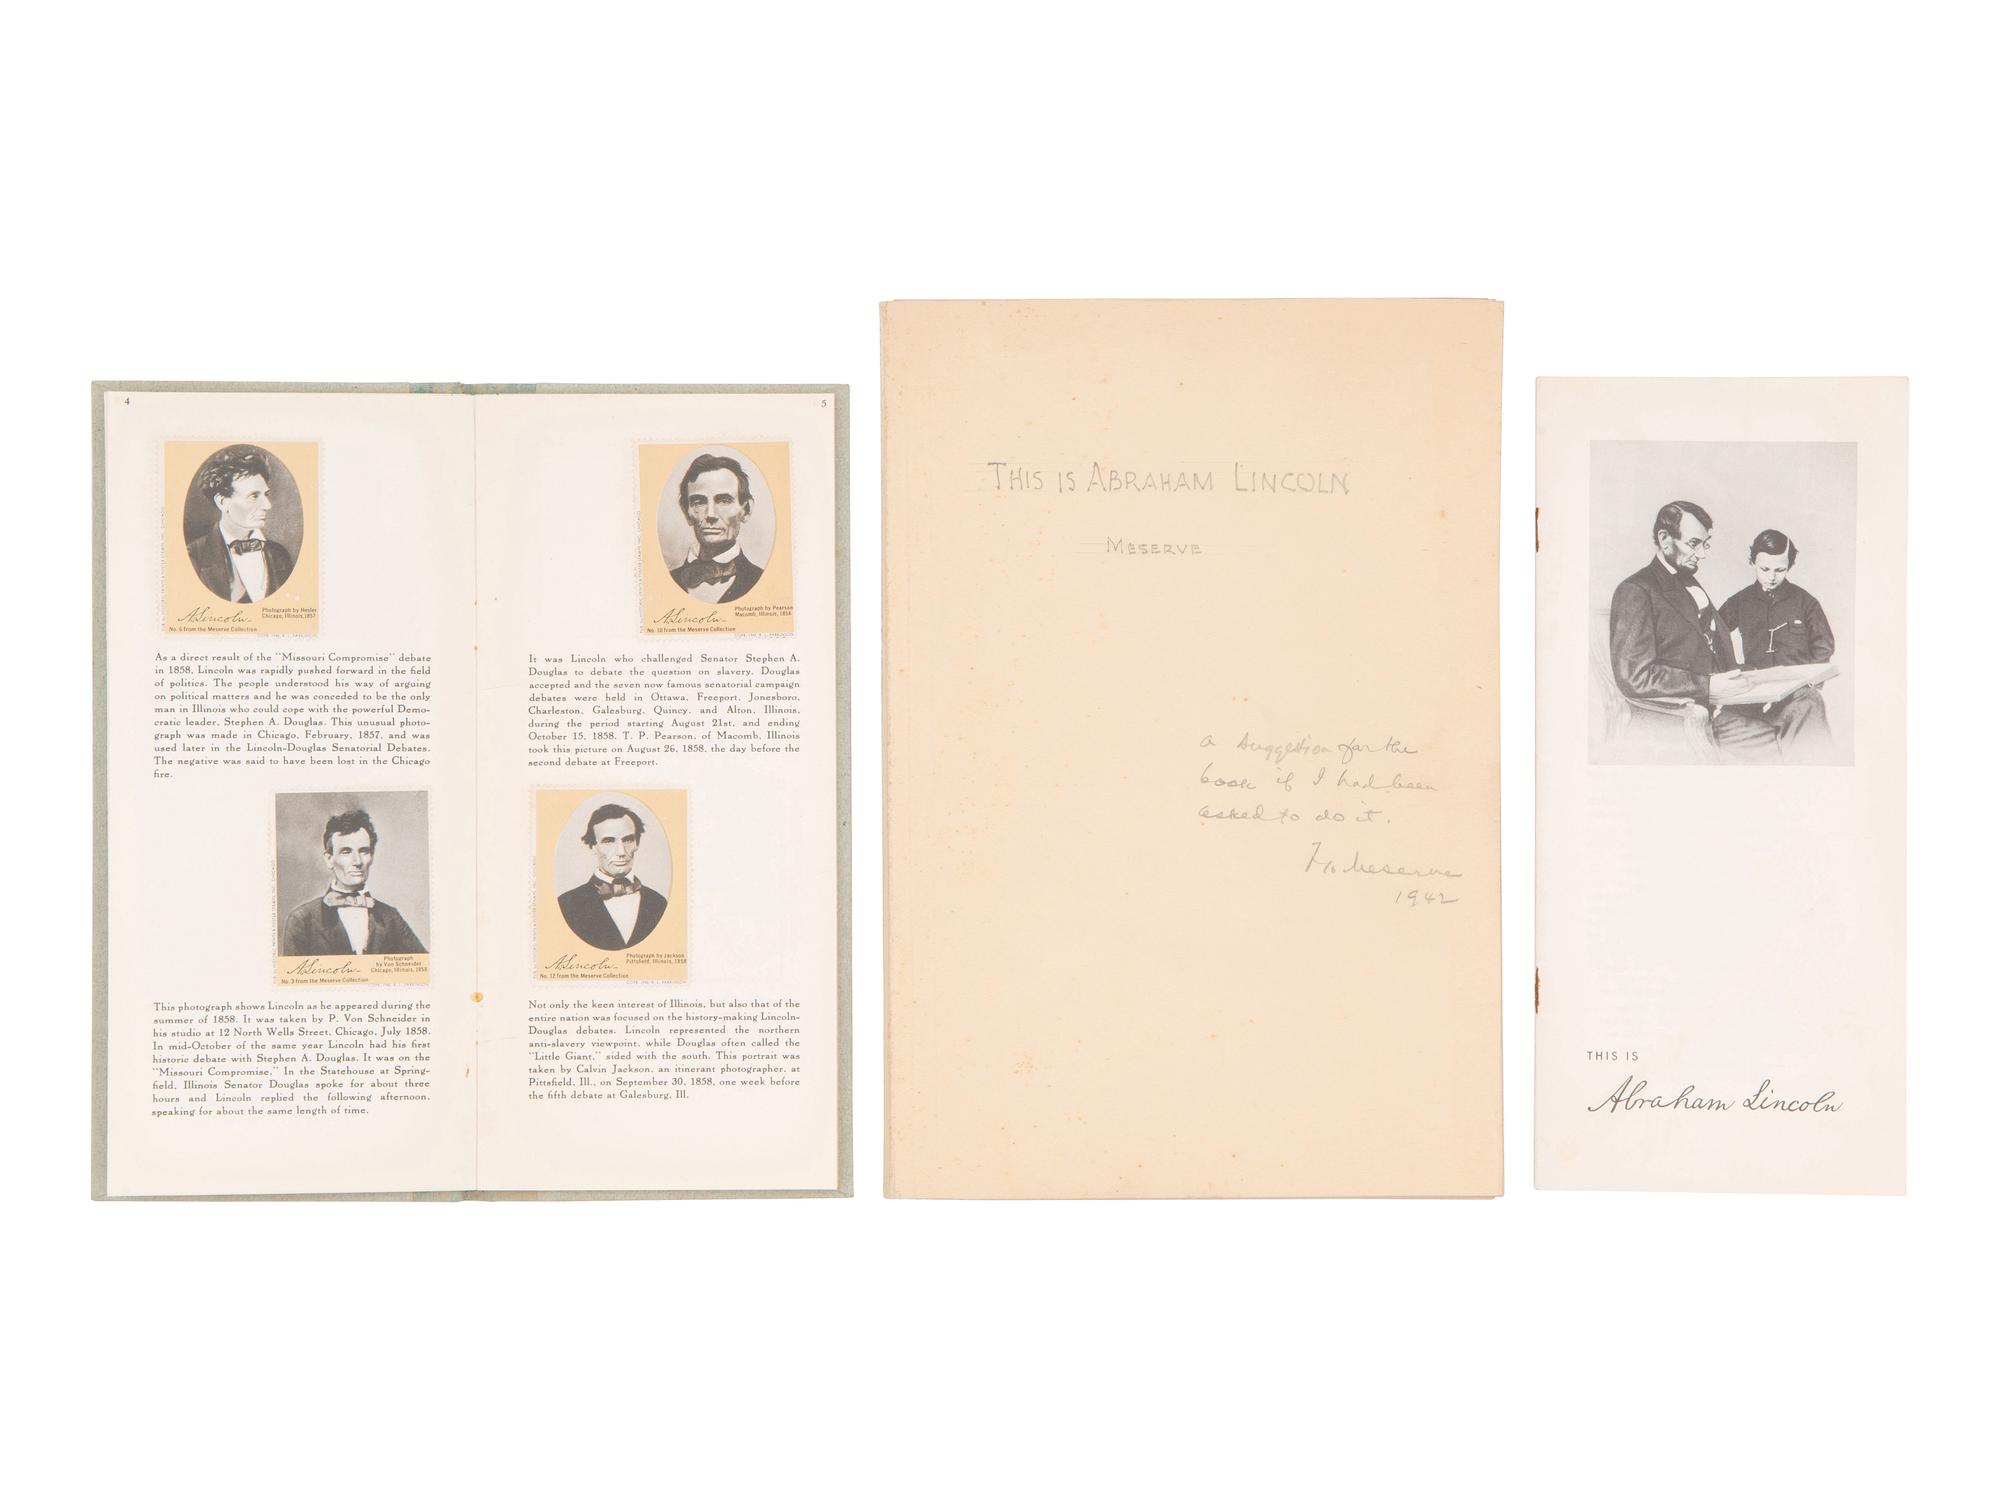 4
A. Lincoln
Photograph by Hesler
Chicago, Illinois, 1857
No. 6 from the Meserve Collection
As a direct result of the "Missouri Compromise" debate
in 1858, Lincoln was rapidly pushed forward in the field
of politics. The people understood his way of arguing
on political matters and he was conceded to be the only
man in Illinois who could cope with the powerful Demo-
cratic leader, Stephen A. Douglas. This unusual photo-
graph was made in Chicago, February, 1857, and was
used later in the Lincoln-Douglas Senatorial Debates.
The negative was said to have been lost in the Chicago
fire.
A. Lincoln
Photograph
by Von Schneider
Chicago, Illinois, 1858
No. 3 from the Meserve Collection
This photograph shows Lincoln as he appeared during the
summer of 1858. It was taken by P. Von Schneider in
his studio at 12 North Wells Street, Chicago, July 1858.
In mid-October of the same year Lincoln had his first
historic debate with Stephen A. Douglas. It was on the
"Missouri Compromise." In the Statehouse at Spring-
field, Illinois Senator Douglas spoke for about three
hours and Lincoln replied the following afternoon,
speaking for about the same length of time.
5
A. Lincoln
Photograph by Pearson
Macomb, Illinois, 1858
No. 10 from the Meserve Collection
It was Lincoln who challenged Senator Stephen A.
Douglas to debate the question on slavery. Douglas
accepted and the seven now famous senatorial campaign
debates were held in Ottawa, Freeport, Jonesboro,
Charleston, Galesburg, Quincy, and Alton, Illinois,
during the period starting August 21st, and ending
October 15, 1858. T. P. Pearson, of Macomb, Illinois
took this picture on August 26, 1858, the day before the
second debate at Freeport.
A. Lincoln
Photograph by Jackson
Pittsfield, Illinois, 1858
No. 12 from the Meserve Collection
COPR. 1940 R. L. PARKINSON
Not only the keen interest of Illinois, but also that of the
entire nation was focused on the history-making Lincoln-
Douglas debates. Lincoln represented the northern
anti-slavery viewpoint, while Douglas often called the
"Little Giant," sided with the south. This portrait was
taken by Calvin Jackson, an itinerant photographer, at
Pittsfield, Ill., on September 30, 1858, one week before
the fifth debate at Galesburg, Ill.
THIS IS ABRAHAM LINCOLN
MESERVE
a suggestion for the
book if I had been
asked to do it.
FH Meserve
1942
THIS IS
Abraham Lincoln